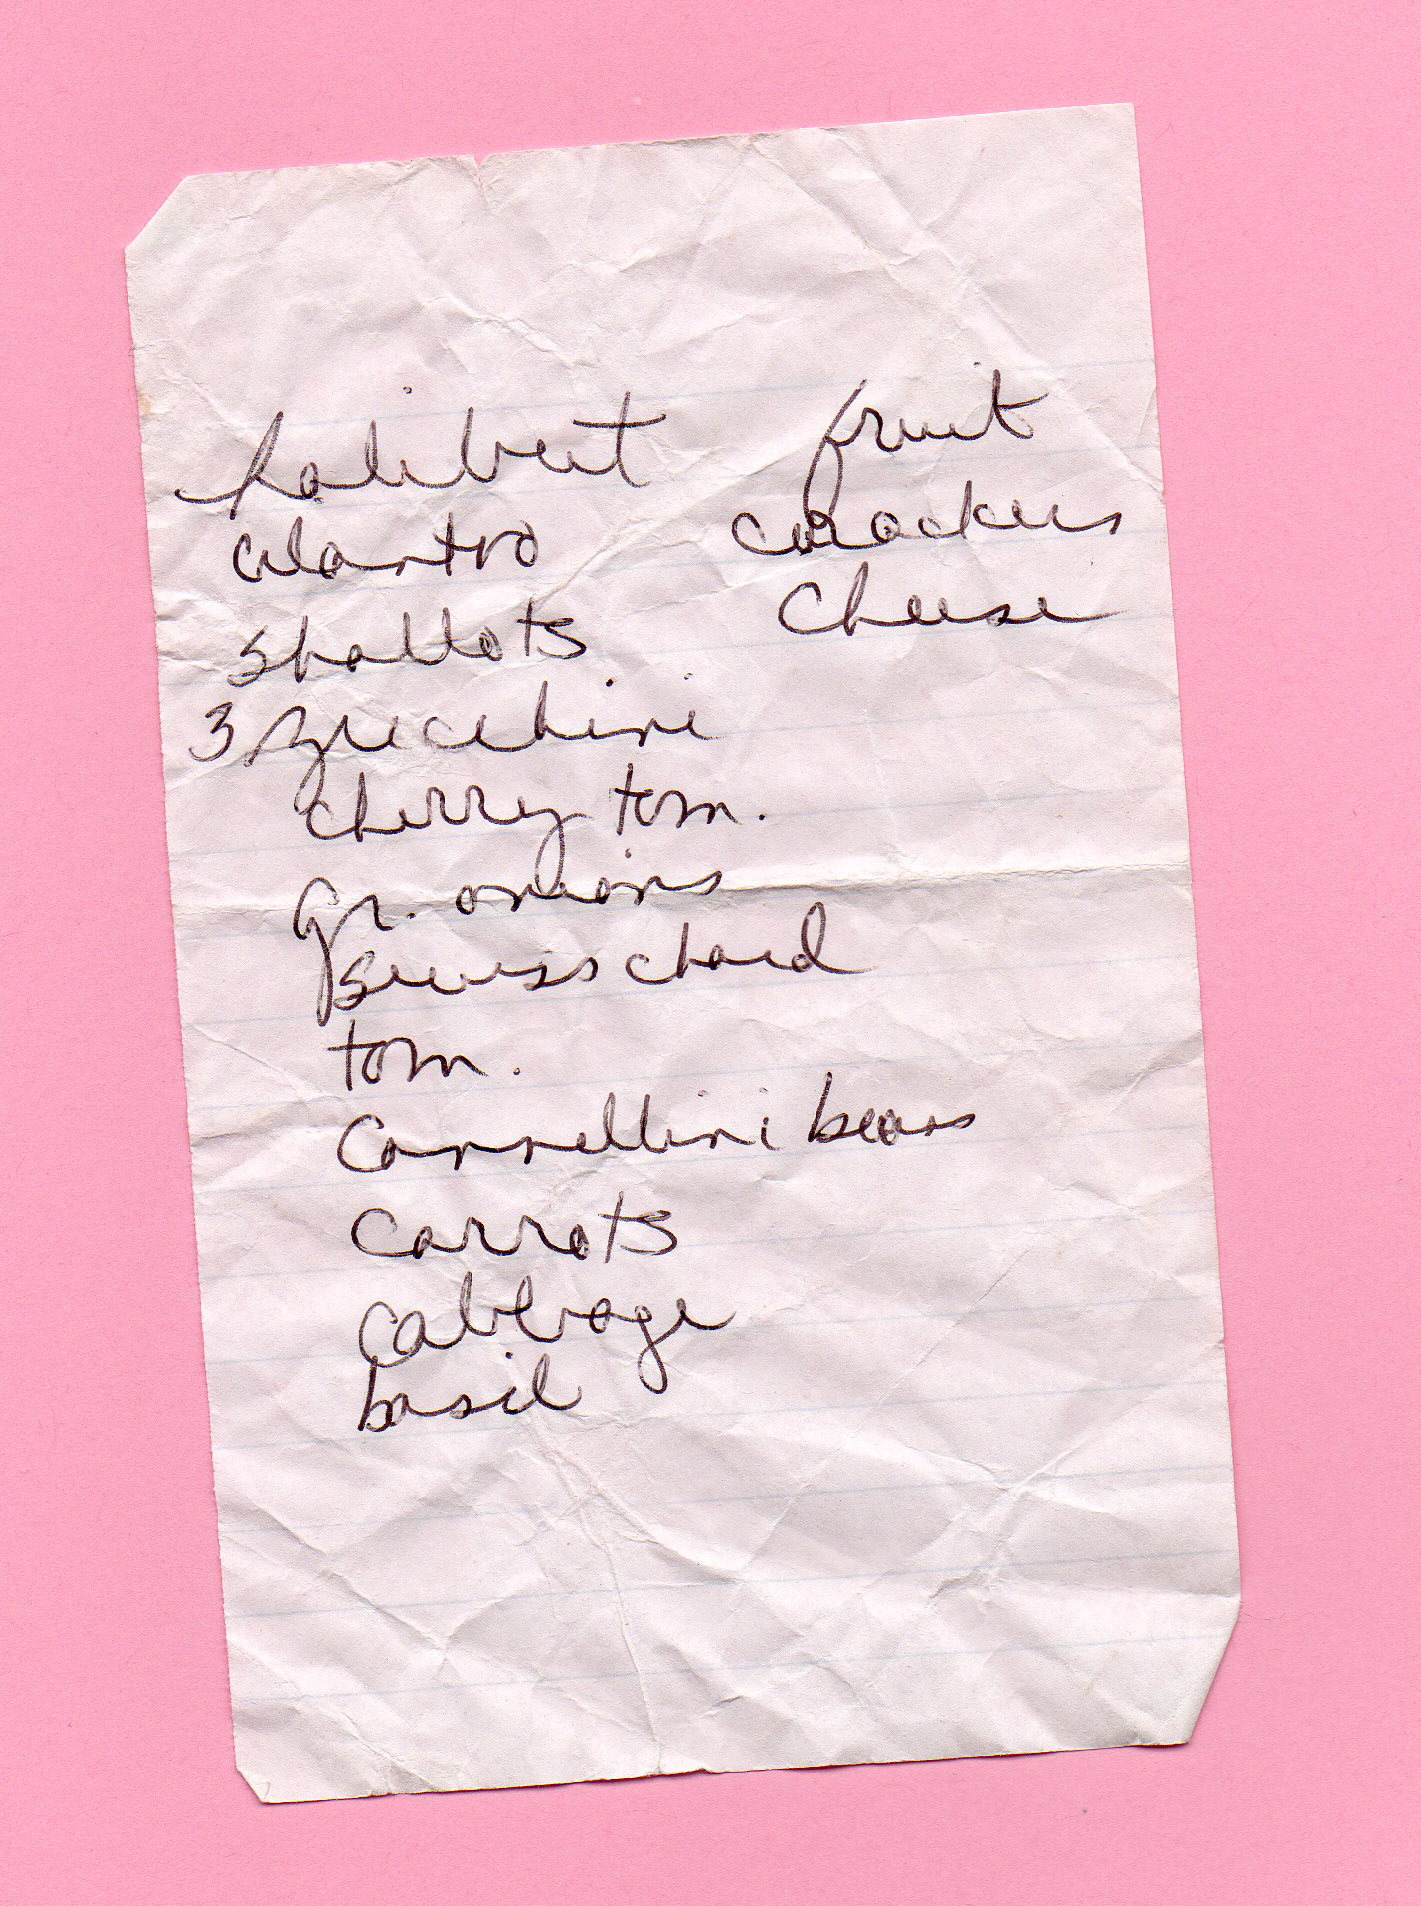 halibut
cilantro
shallots
3 zucchini
cherry tom.
gr. onions
swiss chard
tom.
Cannellini beans
carrots
cabbage
basil
fruit
crackers
Cheese